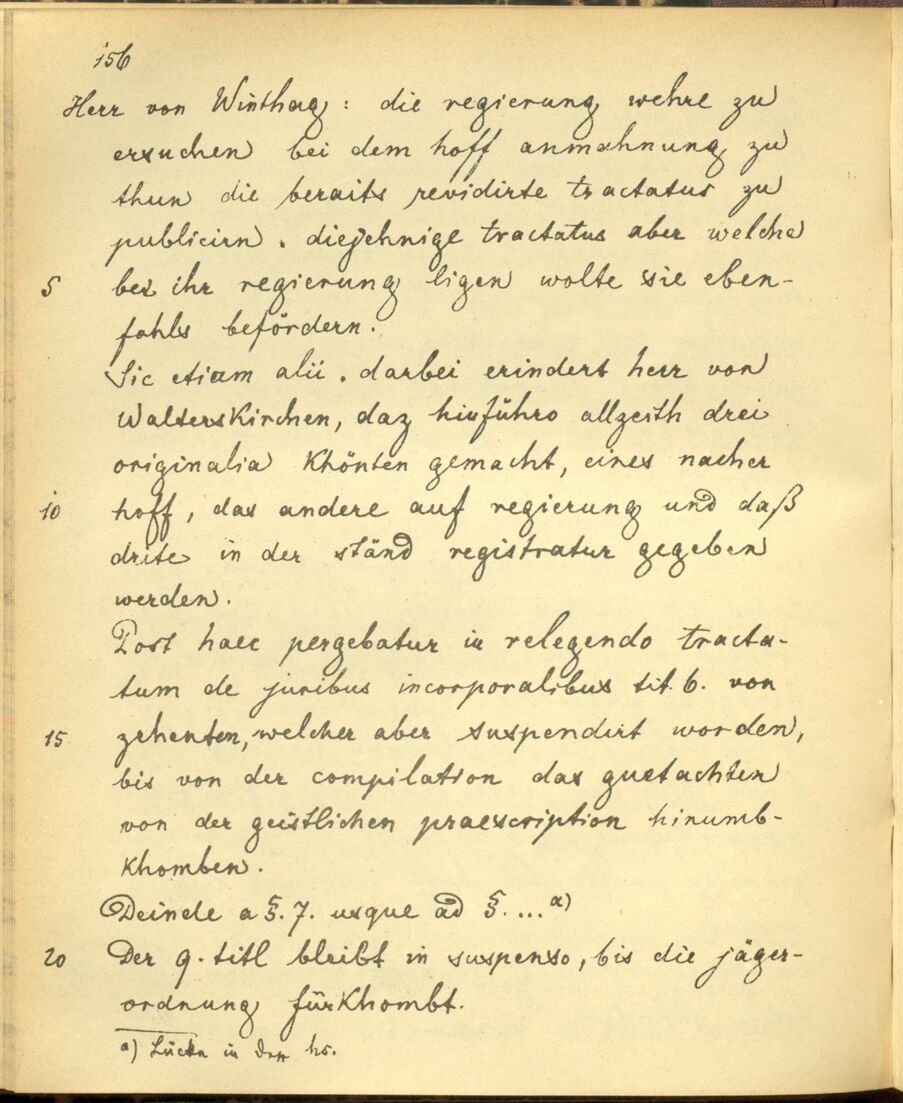 156
Herr von Winthag: die regierung wehre zu
ersuchen bei dem hoff anmahnung zu
thun die beraits revidirte tractatus zu
publicirn. diejehnige tractatus aber welche
5 bei ihr regierung ligen wolte sie eben-
fahls befördern.
Sic etiam alii. darbei erindert herr von
Walterskirchen, daz hinführo allzeith drei
originalia khönten gemacht, eines nacher
10 hoff, das andere auf regierung und daß
drite in der ständ registratur gegeben
werden.
Post haec pergebatur in relegendo tracta-
tum de juribus incorporalibus tit. 6. von
15 zehenten, welcher aber suspendirt worden,
bis von der compilation das guetachten
von der geistlichen praescription hinumb-
khomben.
Deinde a §. 7. usque ad §. ... a)
20 Der 9. titl bleibt in suspenso, bis die jäger-
ordnung fürkhombt.
a) Lücke in der hs.